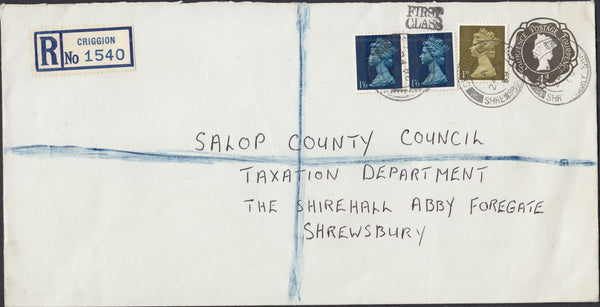 R
CRIGGION
No 1540
FIRST
CLASS
1/6
1/6
1D
POSTAGE
4D
SHREWSBURY
SALOP COUNTY COUNCIL
TAXATION DEPARTMENT
THE SHIREHALL ABBY FOREGATE
SHREWSBURY